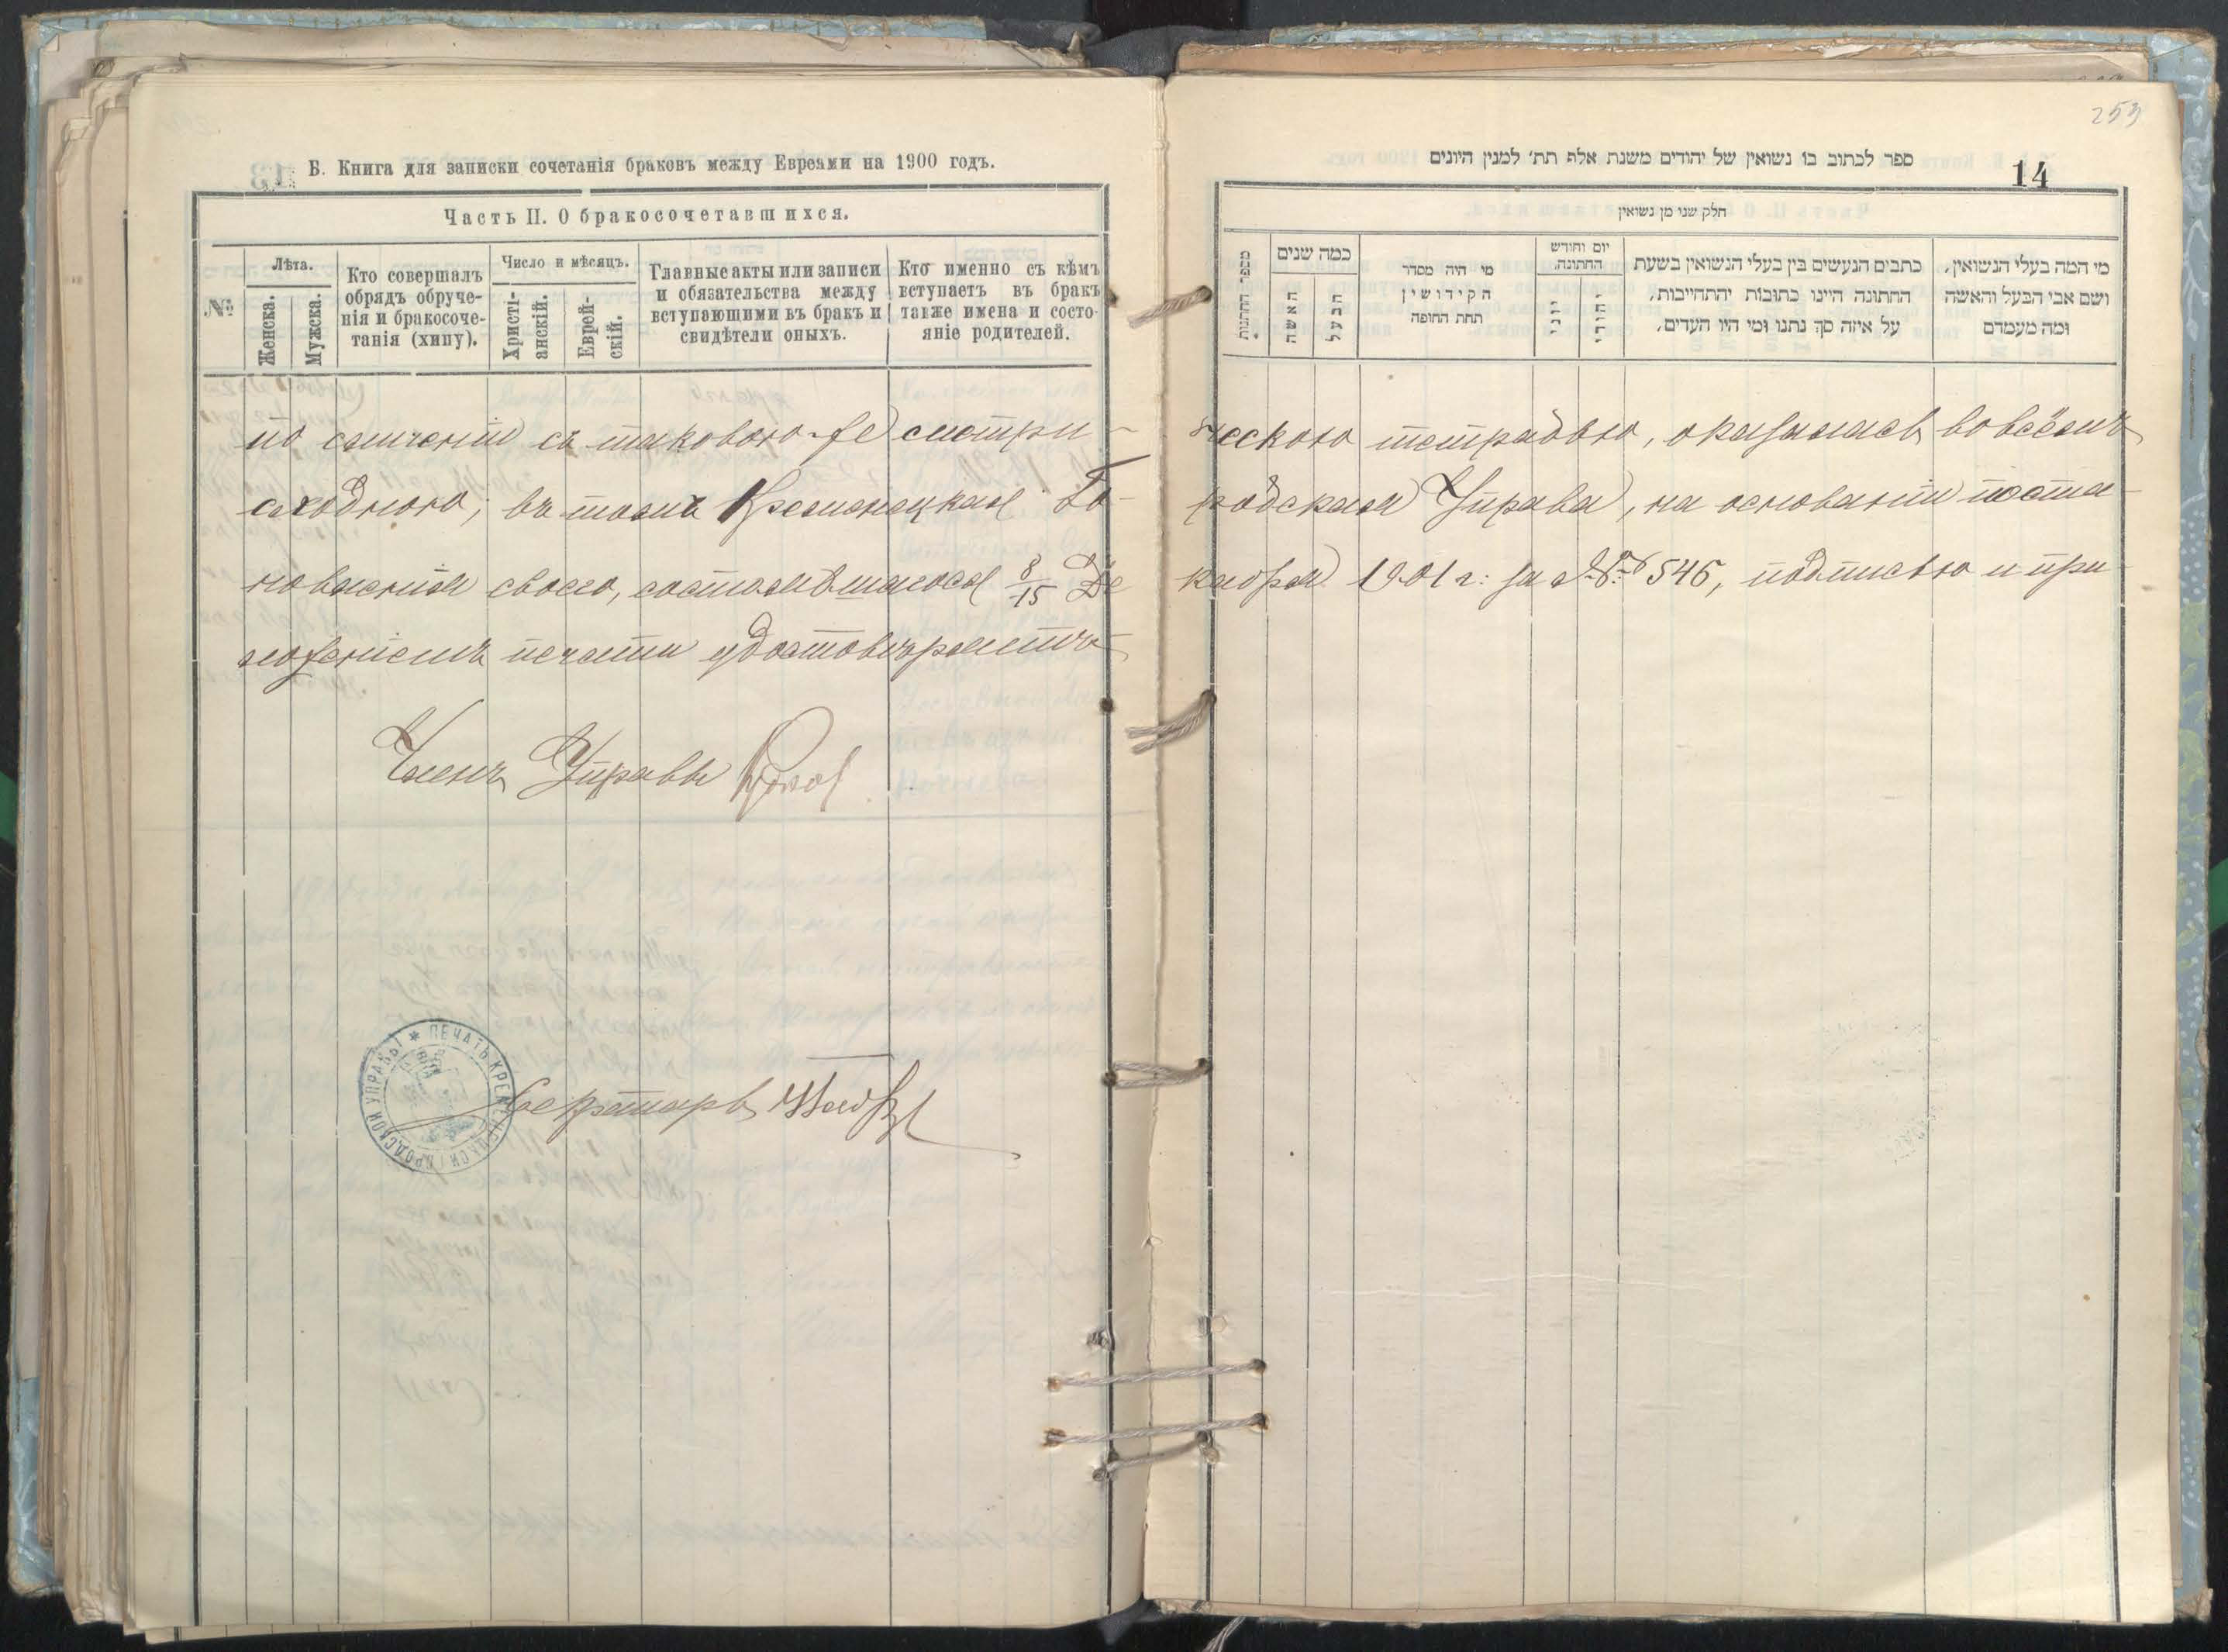 Б. Книга для записки сочетанія браковъ между Евреями на 1900 годъ.
Часть II. О бракосочетавшихся.
№
Лѣта.
Женска.
Мужска.
Кто совершалъ
обрядъ обруче-
нія и бракосоче-
танія (хипу).
Число и мѣсяцъ.
Христі-
анскій.
Еврей-
скій.
Главные акты или записи
и обязательства между
вступающими въ бракъ и
свидѣтели оныхъ.
Кто именно съ кѣмъ
вступаетъ въ бракъ
также имена и состо-
яніе родителей.
253
ספר לכתוב בו נשואין של יהודים משנת אלף תת׳ למנין היונים
14
חלק שני מן נשואין
מספר החתונות
כמה שנים
האשה
הבעל
מי היה מסדר
הקידושין
תחת החופה
יום וחודש
החתונה.
יוני
יהודי
כתבים הנעשים בין בעלי הנשואין בשעת
החתונה היינו כתובות יהתחייבות,
על איזה סך נתנו ומי היו העדים,
מי המה בעלי הנשואין,
ושם אבי הבעל והאשה
ומה מעמדם
по сличеніи съ таковою-же метри-ческою тетрадью, оказалась во всёмъ
сходною, въ томъ Кременецкая Го-родская Управа, на основаніи поста-
новленія своего, состоявшагося 8/15 Де-кабря 1901 г: за № 546, подписью и при-
ложеніемъ печати удостовѣряетъ
Членъ Управы
Секретарь
ПЕЧАТЬ КРЕМЕНЕЦКОЙ ГОРОДСКОЙ УПРАВЫ